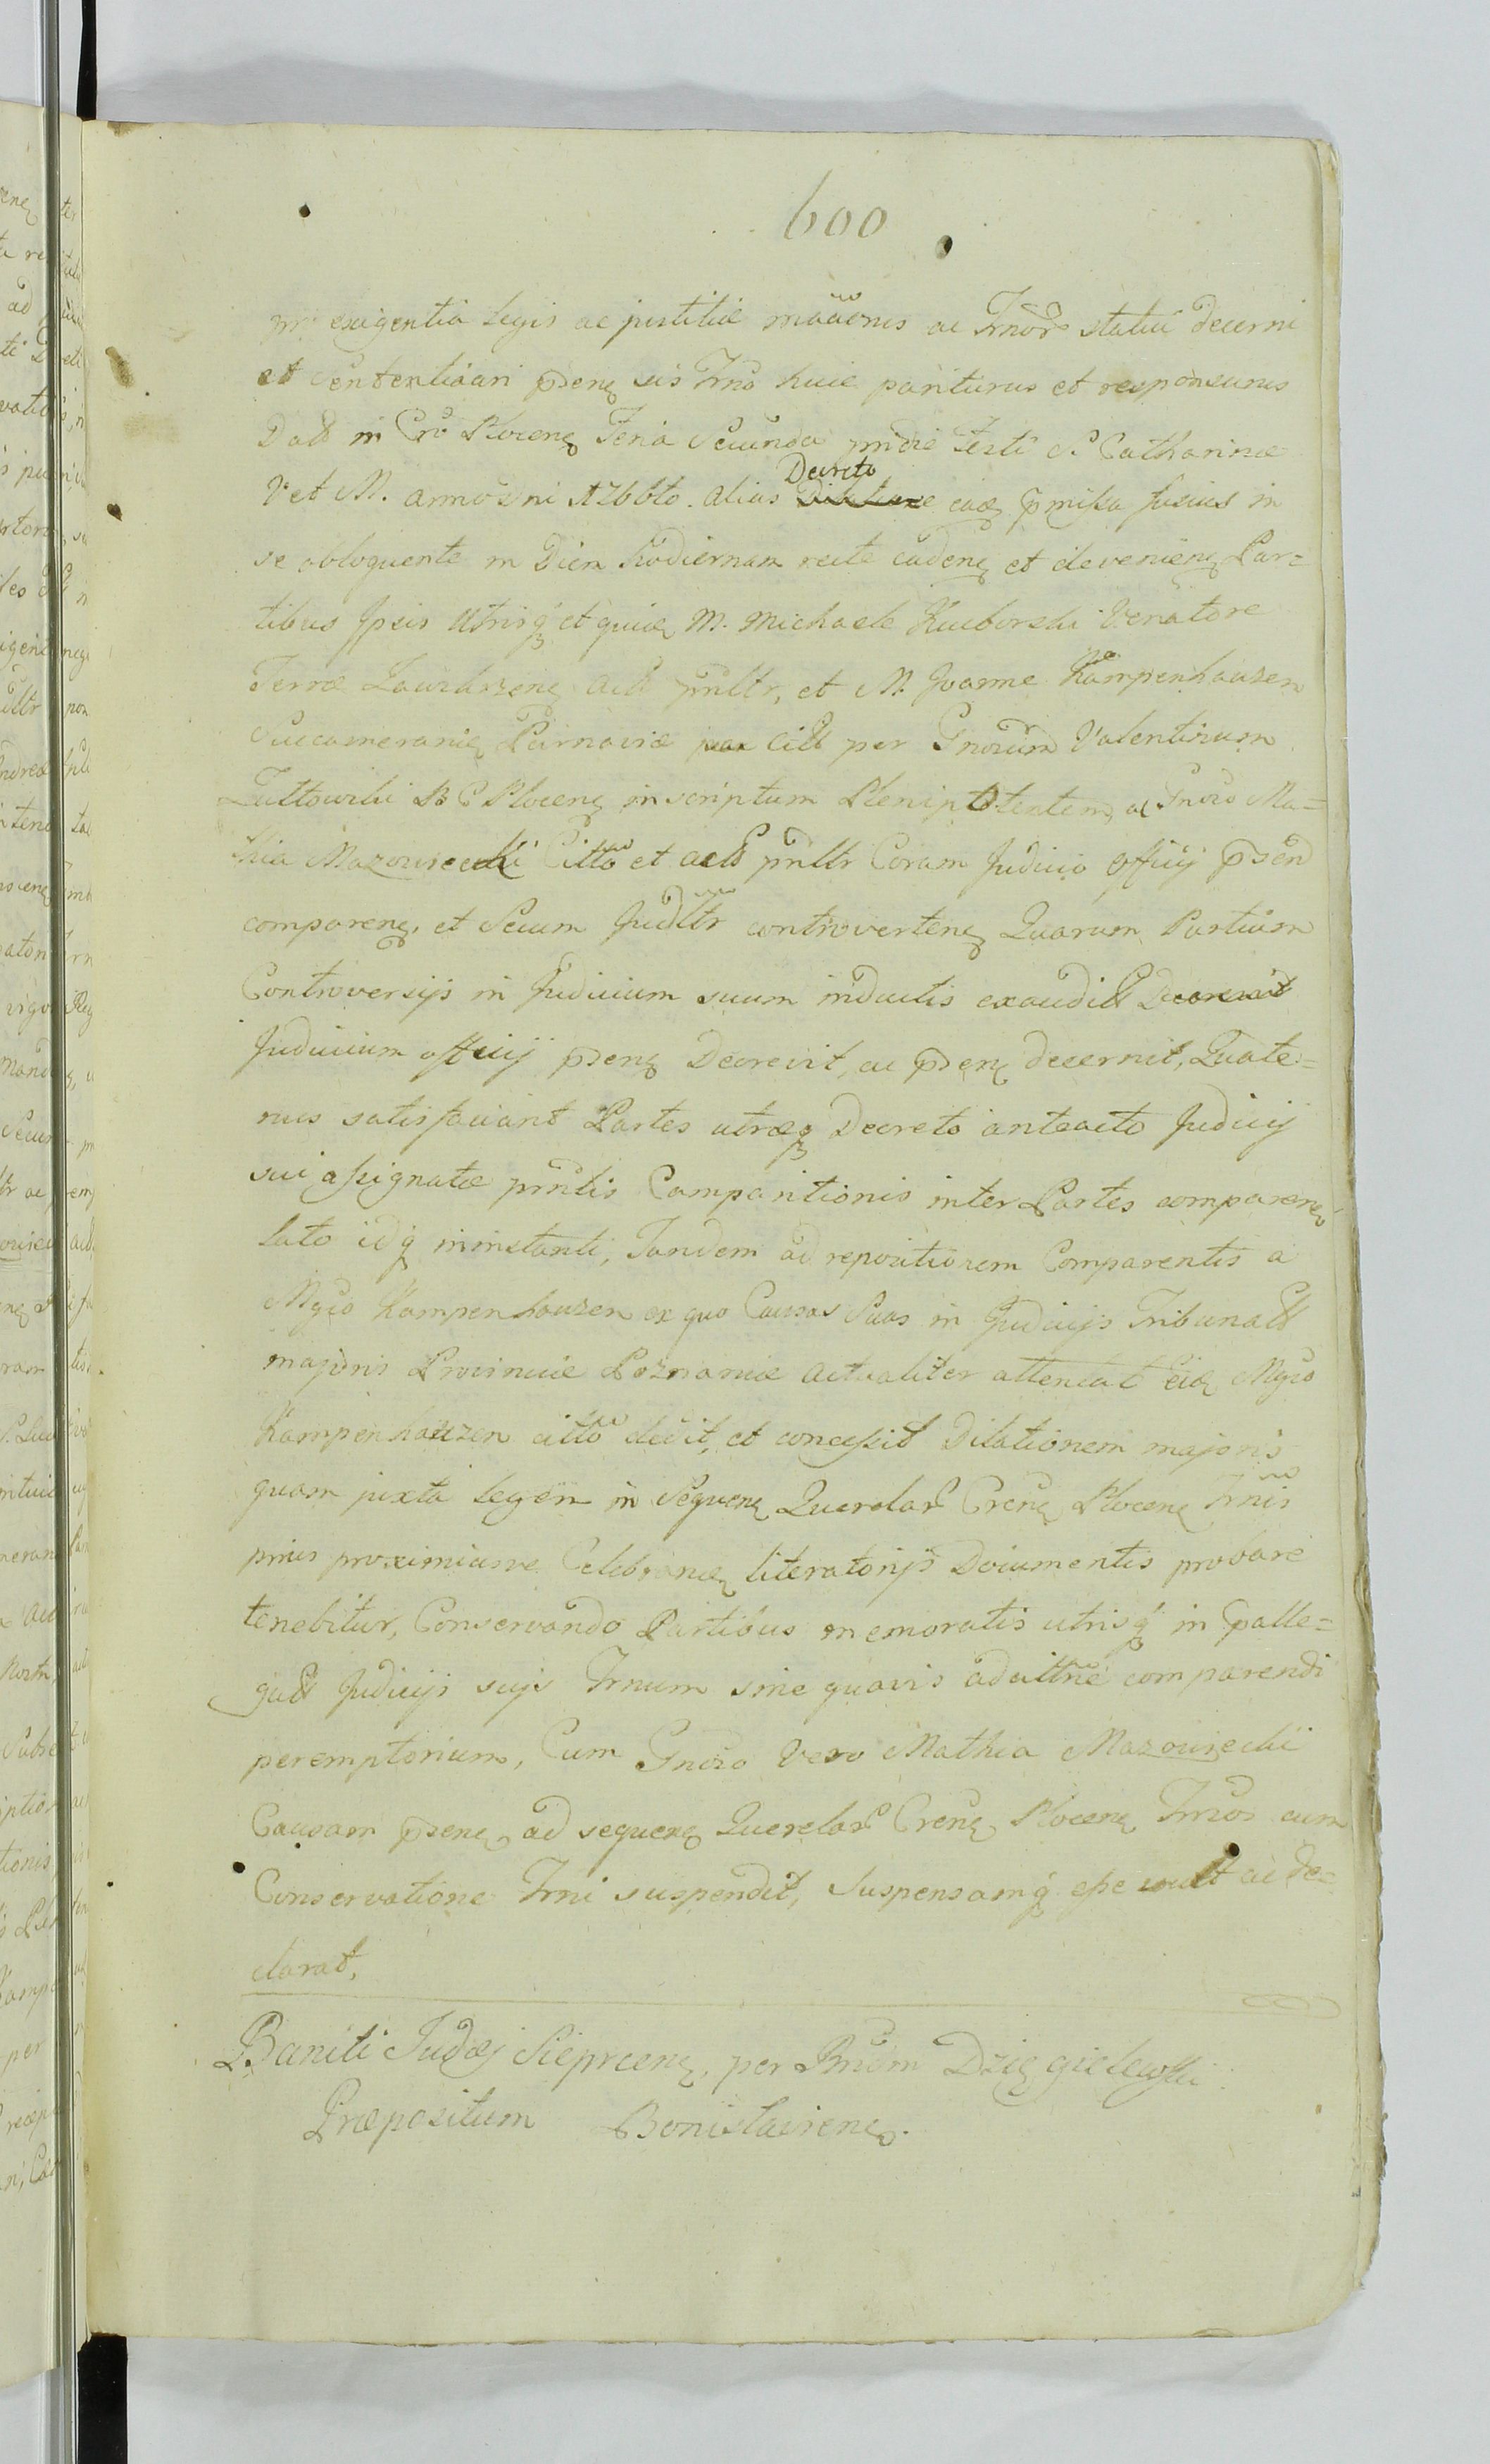 600
pro exigentia Legis ac justitiæ maãonis ac Trnor̃ statui decerni
et sententiari p̃senȩ sis Trno huic pariturus et responsurus
Datt in Crõ Plocenȩ Feria Secunda pridie Festi S. Catharinæ
V et M. anno Dni 1766to. alias Decreto eadȩ p̃missa fusius in
se obloquente in Diem hodiernam recte cadenȩ et devenienȩ Par=
tibus Ipsis Utrisq̃ et quidȩ M. Michaele Kuborski Venatore
Terræ Zawskrzenȩ actt pnltr, et M. Joanne Kampenhauzen
Succamerariȩ Parnaviæ citt per Gnosum Valentinum
Luttowski B C Plocenȩ in scriptum Plenipotentem ac Gnoso Ma=
thia Mazowiecki Citto et actt pnltr Coram Judicio Officij p̃send
comparenȩ, et Secum Judltr controvertenȩ Quarum Partium
Controversijs in Judicium suum inductis exauditt
Judicium officij p̃senȩ Decrevit, ac p̃senȩ decernit, Quate=
nus satisfaciant Partes utræq̃ Decreto anteacto Judicij
sui assignatæ pnlis Comparitionis inter Partes comparenȩ
lato idq̃ ininstanti, Tandem ad repositionem Comparentis a
Mgco Kampenhauzen ex quo Causas Suas in Judicijs Tribunatt
majoris Provinciæ Poznaniæ actualiter attentat eidȩ Mgco
Kampenhauzen citto dedit, et concessit Dilationem majoris
quam juxta legem in Sequenȩ Querelar̃ Crenȩ Plocenȩ Trnis
prius proximiusve Celebrandȩ literatorijs Documentis probare
tenebitur, Conservando Partibus memoratis utrisq̃ in palle=
gatt Judicijs suis Trnum sine quavis adcittne comparendi
peremptorium, Cum Gnoso Vero Mathia Mazowiecki
Causam p̃senȩ ad sequenȩ Querelar̃ Crenȩ Plocenȩ Trnos cum
Conservatione Trni suspendit, Suspensamq̃ esse vult ac de=
clarat,
Baniti Judæj Sieprcenȩ, per Rndm Dzięgielewski
Præpositum Bonislaviensȩ.